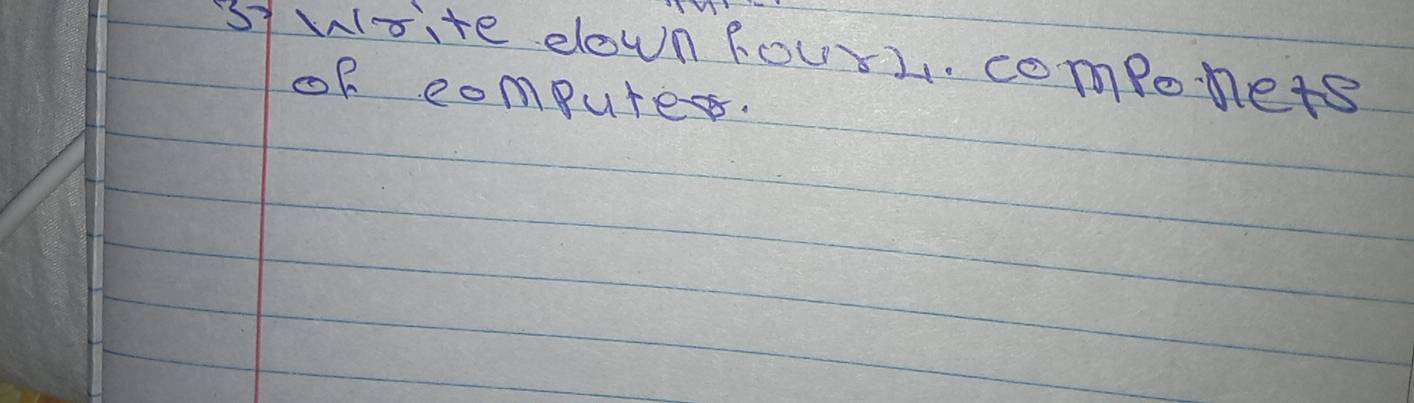 3) Write down four 4. componets
of computer.